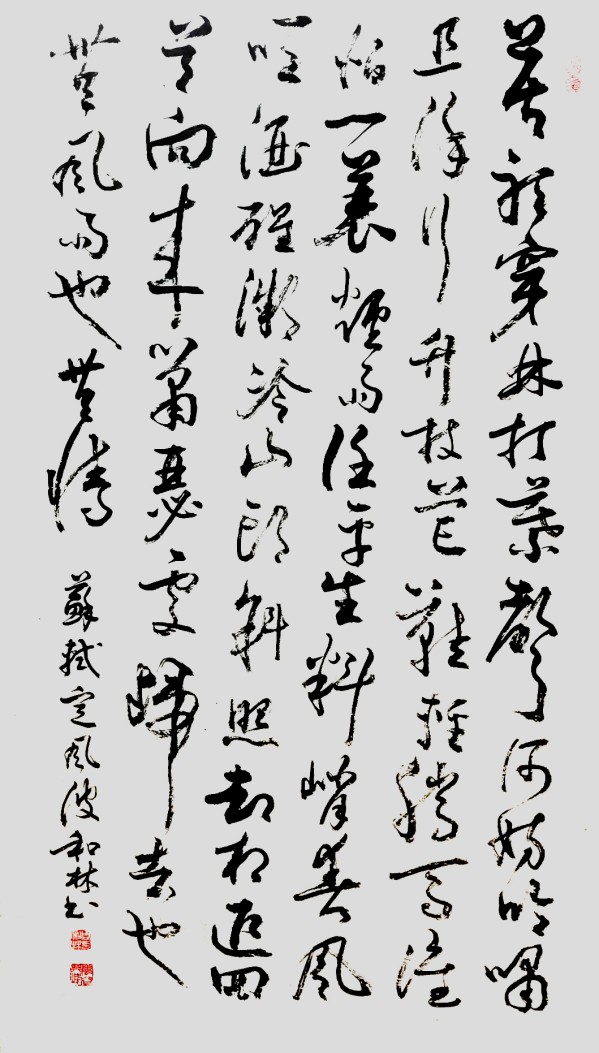 莫聽穿林打葉聲何妨吟嘯
且徐行竹杖芒鞋輕勝馬誰
怕一蓑煙雨任平生料峭春風
吹酒醒微冷山頭斜照却相迎回
首向來蕭瑟處歸去也
無風雨也無晴
蘇軾定風波和林書